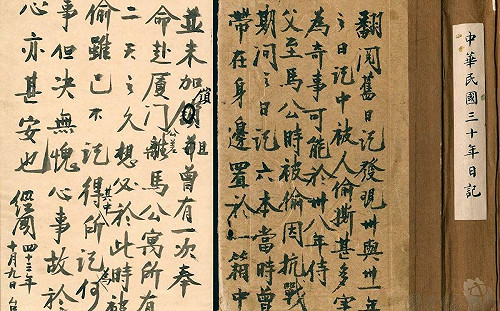 中華民國三十年日記
翻閱舊日记發現卅與卅一年
之日记中被人偷撕甚多實
為奇事可能於卅八年侍
父至馬公時被偷因抗戰
期间之日记六本當時曾
帶在身邊置於一箱中
並未加鎖且曾有一次奉
命赴厦门公差離馬公寓所有
二天之久想必於此時被
偷雖已不记得其所记為何
事但决無愧心事故於
心亦甚安也 經國 四十三年
十月九日